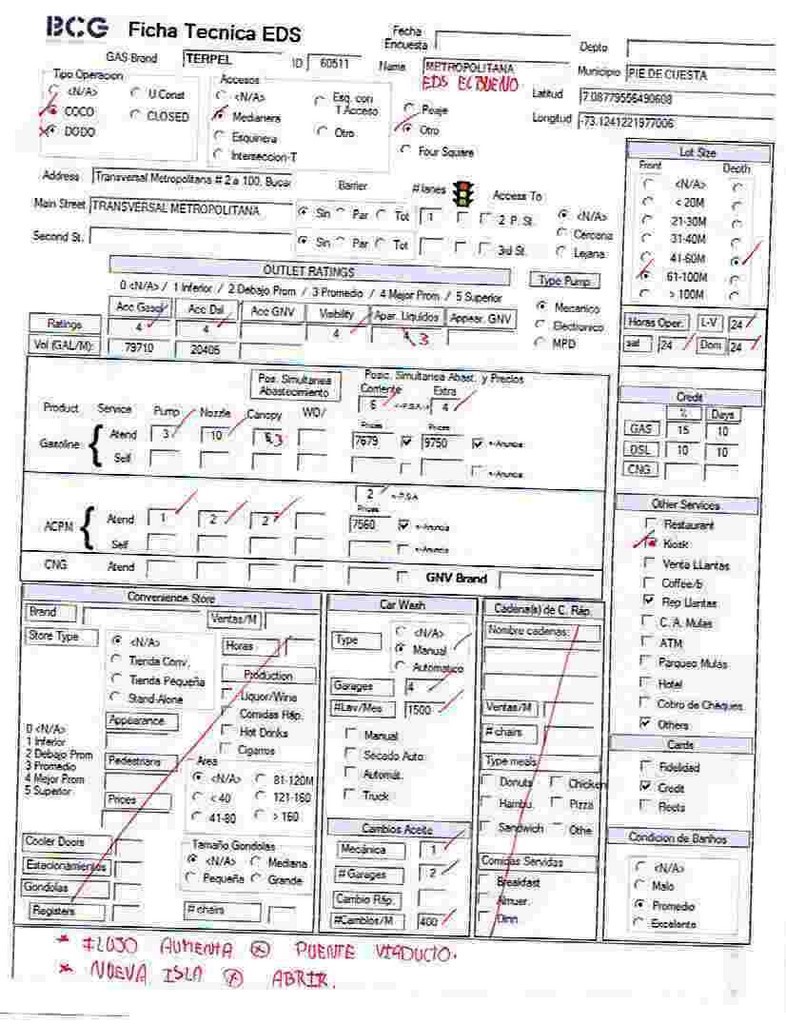 BCG Ficha Tecnica EDS
Fecha Encuesta
Depto
GAS Brand TERPEL ID 60511 Name METROPOLITANA
EDS EL BUENO
Municipio PIE DE CUESTA
Latitud 7.08779556490608
Longitud -73.1241221977006
Tipo Operacion
<N/A> U.Const
COCO CLOSED
DODO
Accesos
<N/A> Esq. con T Acceso
Medianera
Esquinera Otro
Interseccion-T
Peaje
Otro
Four Square
Lot Size
Front Depth
<N/A>
< 20M
21-30M
31-40M
41-60M
61-100M
> 100M
Address Transversal Metropolitana # 2 a 100, Bucar
Main Street TRANSVERSAL METROPOLITANA
Second St.
Barrier # lanes Access To
Sin Par Tot 1 2 P. St.
Sin Par Tot 3rd St.
<N/A>
Cercana
Lejana
OUTLET RATINGS
0 <N/A> / 1 Inferior / 2 Debajo Prom / 3 Promedio / 4 Mejor Prom / 5 Superior
Acc Gasol Acc Dsl Acc GNV Visibility Apar. Liquidos Appear. GNV
Ratings 4 4 4 4 3
Vol (GAL/M): 79710 20405
Type Pump
Mecanico
Electronico
MPD
Horas Oper. L-V 24
sat 24 Dom 24
Pos. Simultanea Abastecimiento
Posic. Simultanea Abast. y Precios
Corriente Extra
6 4
Product Service Pump Nozzle Canopy WD/
Gasoline: Atend 3 10 3
Prices Prices
7679 9750 +-Anuncia
Self +-Anuncia
Credit
% Days
GAS 15 10
DSL 10 10
CNG
2 +-P.S.A
ACPM Atend 1 2 2
Prices
7560 +-Anuncia
Self +-Anuncia
CNG Atend GNV Brand
Other Services
Restaurant
Kiosk
Venta LLantas
Coffee/b
Rep Llantas
C. A. Mulas
ATM
Parqueo Mulas
Hotel
Cobro de Cheques
Others
Cards
Fidelidad
Credit
Fleets
Condicion de Banhos
<N/A>
Malo
Promedio
Excelente
Convenience Store
Brand Ventas/M
Store Type
<N/A>
Tienda Conv.
Tienda Pequeña
Stand-Alone
Horas
Production
Liquor/Wine
Comidas Ráp.
Hot Drinks
Cigarros
0 <N/A>
1 Inferior
2 Debajo Prom
3 Promedio
4 Mejor Prom
5 Superior
Appearance
Pedestrians
Prices
Area
<N/A> 81-120M
< 40 121-160
41-80 > 160
Cooler Doors
Estacionamientos
Gondolas
Registers
Tamaño Gondolas
<N/A> Mediana
Pequeña Grande
# chairs
Car Wash
Type
<N/A>
Manual
Automatico
Garages 4
#Lav/Mes 1500
Manual
Secado Auto
Automát.
Truck
Cambios Aceite
Mecánica 1
# Garages 2
Cambio Ráp.
#Cambios/M 400
Cadena(s) de C. Ráp.
Nombre cadenas:
Ventas/M
# chairs
Type meals
Donuts Chicken
Hambu. Pizza
Sandwich Othe
Comidas Servidas
Breakfast
Almuer.
Dinn
* FLUJO AUMENTA ⊗ PUENTE VIADUCTO.
* NUEVA ISLA ⊗ ABRIR.